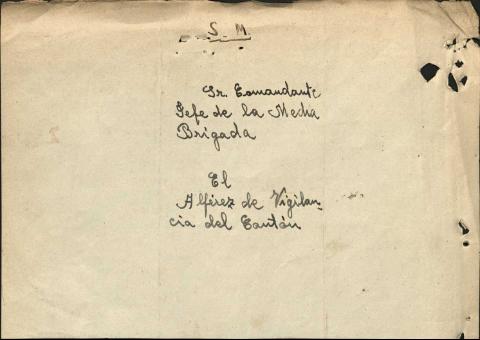 S. M.
Sr. Comandante
Jefe de la Mecha
Brigada
El
Alférez de Vigilan-
cia del Cantón